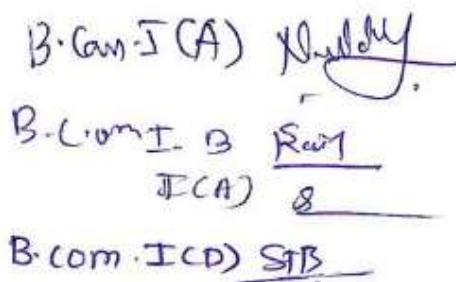 B.Com.I (A)
B.Com I. B
II(A)
B.Com.I(D) STB